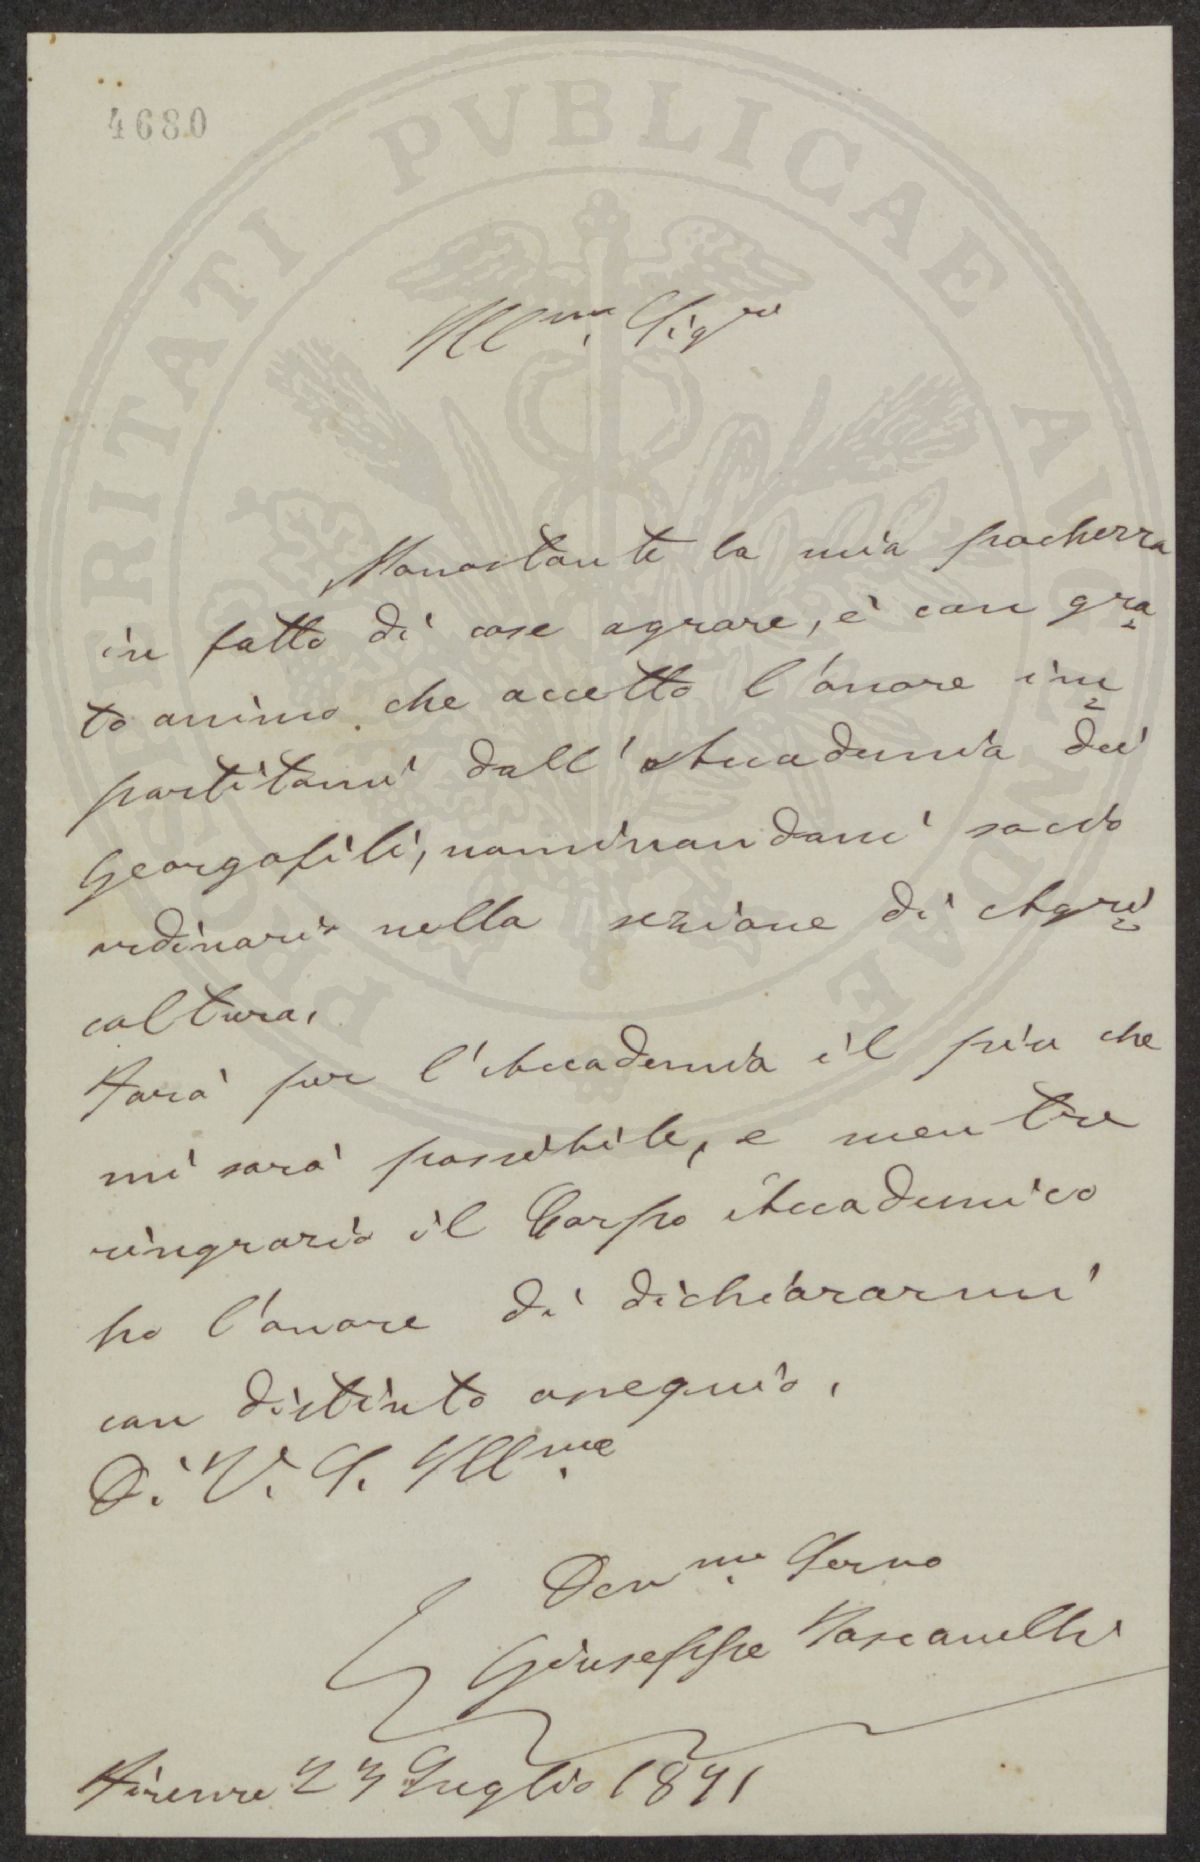 4680
PROSPERITATI PVBLICAE AVGENDAE
Ill.mo Sig.re
Nonostante la mia pochezza
in fatto di cose agrare, è con gra
to animo che accetto l'onore im
partitomi dall'Accademia dei
Georgofili, nominandomi socio
ordinario nella sezione di Agri
coltura.
Farò per l'Accademia il più che
mi sarà possibile, e mentre
ringrazio il Corpo Accademico
ho l'onore di dichiararmi
con distinto ossequio.
Di V. S. Ill.ma
Dev.mo Servo
Giuseppe
Firenze 23 Luglio 1871